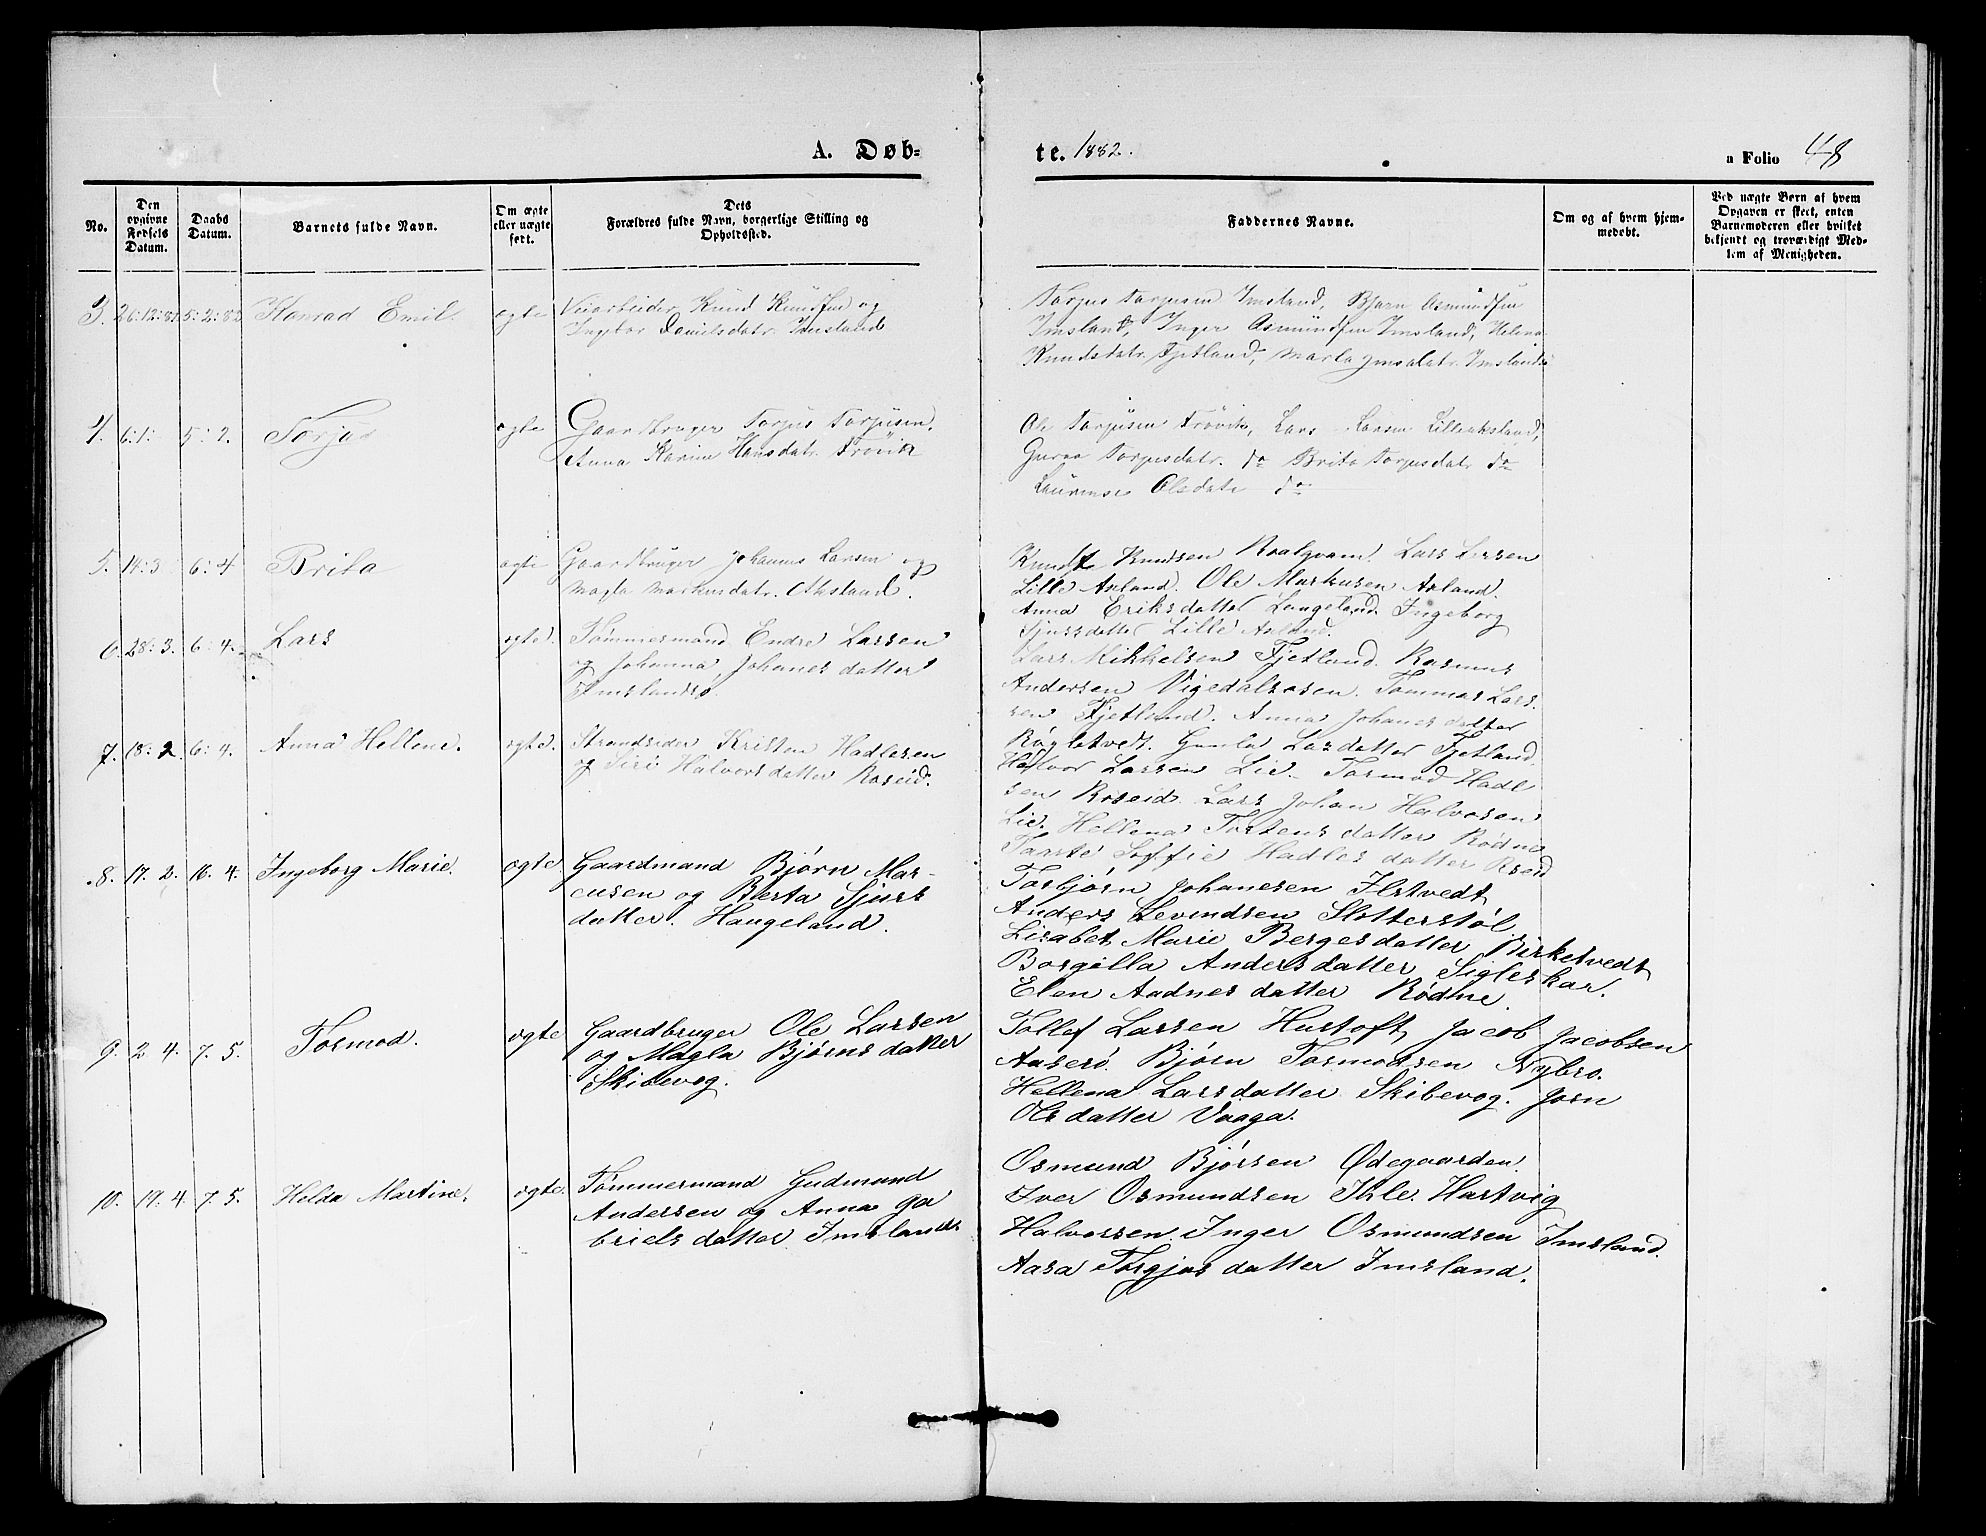 A. Døb-
te. 1882.
a Folio 48
No.
Den opgivne Fødsels Datum.
Daabs Datum.
Barnets fulde Navn.
Om ægte eller uægte født.
Dets Forældres fulde Navn, borgerlige Stilling og Opholdssted.
Faddernes Navne.
Om og af hvem hjemmedøbt.
Ved uægte Børn af hvem Opgaven er skeet, enten Barnemoderen eller hvilket bekjendt og troværdigt Medlem af Menigheden.
3. 26:12:81 5:2:82 Konrad Emil ægte Veiarbeider Knud Knudsen og
Ingbor Danielsdatr. Imsland
Torjus Torjusen Imsland, Bjørn Osmundsen
Imsland, Inger Osmundsen Imsland, Helena
Knudsdatr. Fjetland, Marta Jonsdatr. Imsland
4. 6:1: 5:2. Torjus ægte Gaardbruger Torjus Torjusen,
Anna Karine Hansdatr. Frøvik
Ole Torjusen Frøvik, Lars Larsen Lilleaksland,
Guroa Torjusdatr. do Brita Torjusdatr do
Laurense Olsdatr do
5. 14:3 6:4 Brita ægte Gaardbruger Johannes Larsen og
Magla Markusdatr. Aksland.
Knudt Knudsen Roalqvam. Lars Larsen
Lille Axland. Ole Markusen Axland.
Anna Eriksdatter Langeland. Ingeborg
Sjursdatter Lille Axland.
6. 28:3. 6:4. Lars ægte. Tømmermand Endre Larsen
og Johanna Johanesdatter
Imslandsø.
Lars Mikkelsen Fjetland. Rasmus
Andersen Vigedalsosen. Tommas Lars
sen Fjetland. Anna Johanesdatter
Røgletvedt. Gunla Larsdatter Fjetland
7. 18:2. 6:4. Anna Hellene. ægte. Strandsider Kristen Hadlesen
og Siri Halvorsdatter Roseid.
Halvor Larsen Lie. Tormod Hadle
sen Roseid. Lars Johan Halvosen
Lie. Hellena Torstensdatter Rødne
Taarte Soffie Hadlesdatter Roseid
8. 17. 2. 16. 4. Ingeborg Marie. ægte Gaardmand Bjørn Mar-
cusen og Berta Sjurs
datter. Haugeland.
Torbjørn Johanesen Ilstvedt
Anders Levendsen Slotterstøl
Lisabet Marie Bergesdatter Birketvedt
Borgilla Andersdatter Sigleskar.
Elen Aadnesdatter Rødne.
9. 2 4. 7. 5. Tormod. ægte Gaardbruger Ole Larsen
og Magla Bjørnsdatter
Skibevog.
Tollef Larsen Hustoft, Jacob Jacobsen
Aaserø. Bjørn Tormodsen Nybro.
Hellena Larsdatter Skibevog. Jorn
Olsdatter Vaaga.
10. 19. 4. 7. 5. Helda Martine. ægte. Tømmermand Gudmund
Andersen og Anna Ga
brielsdatter Imsland
Osmund Bjørsen Ødegaarden.
Iver Osmundsen Ihle. Hartvig
Halvorsen. Inger Osmundsen Imsland.
Aasa Torgjusdatter Imsland.